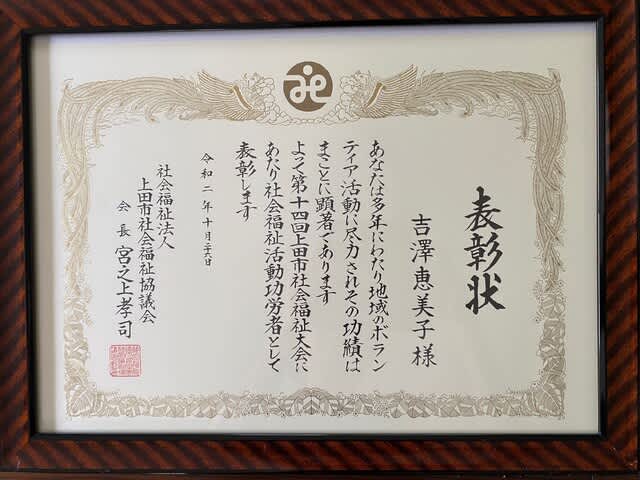 表彰状
吉澤恵美子様
あなたは多年にわたり地域のボラン
ティア活動に尽力されその功績は
まことに顕著であります
よって第十四回上田市社会福祉大会に
あたり社会福祉活動功労者として
表彰します
令和二年十月二十六日
社会福祉法人
上田市社会福祉協議会
会長 宮之上孝司